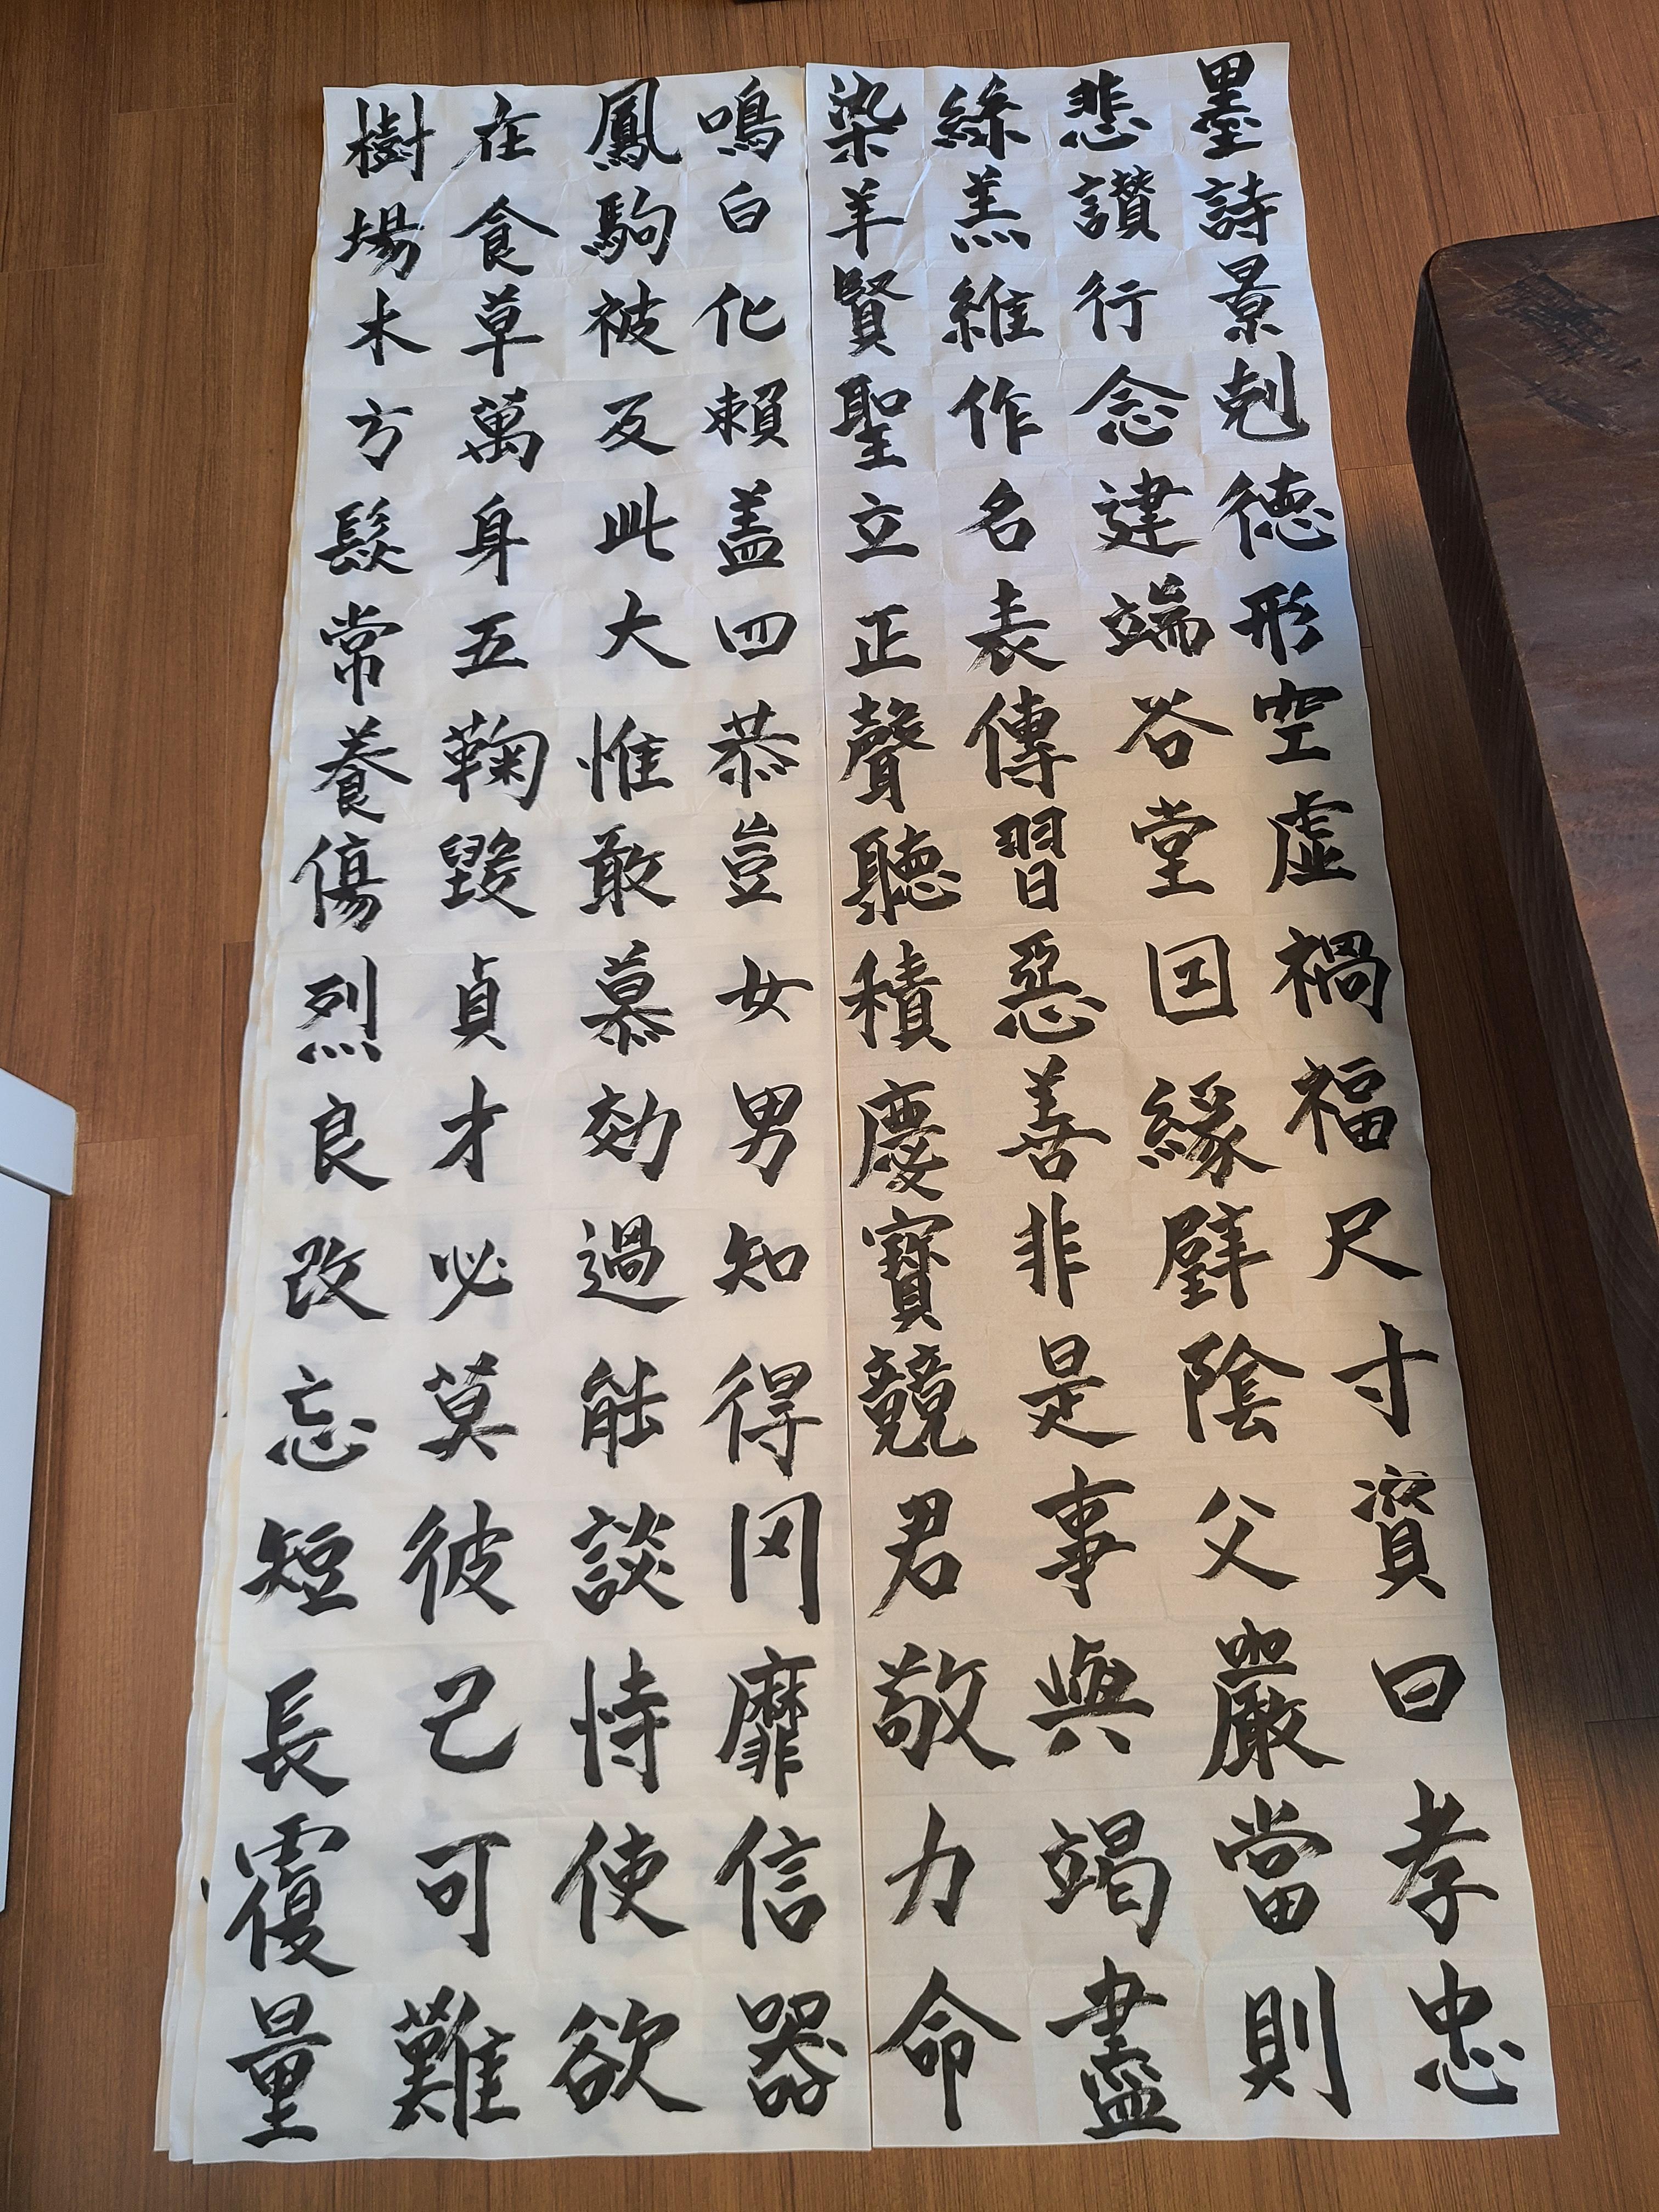 鳴鳳在樹
白駒食場
化被草木
賴及萬方
盖此身髮
四大五常
恭惟鞠養
豈敢毀傷
女慕貞烈
男効才良
知過必改
得能莫忘
罔談彼短
靡恃己長
信使可覆
器欲難量
墨悲絲染
詩讃羔羊
景行維賢
剋念作聖
徳建名立
形端表正
空谷傳聲
虛堂習聽
禍囙惡積
福緣善慶
尺璧非寳
寸陰是競
資父事君
曰嚴與敬
孝當竭力
忠則盡命